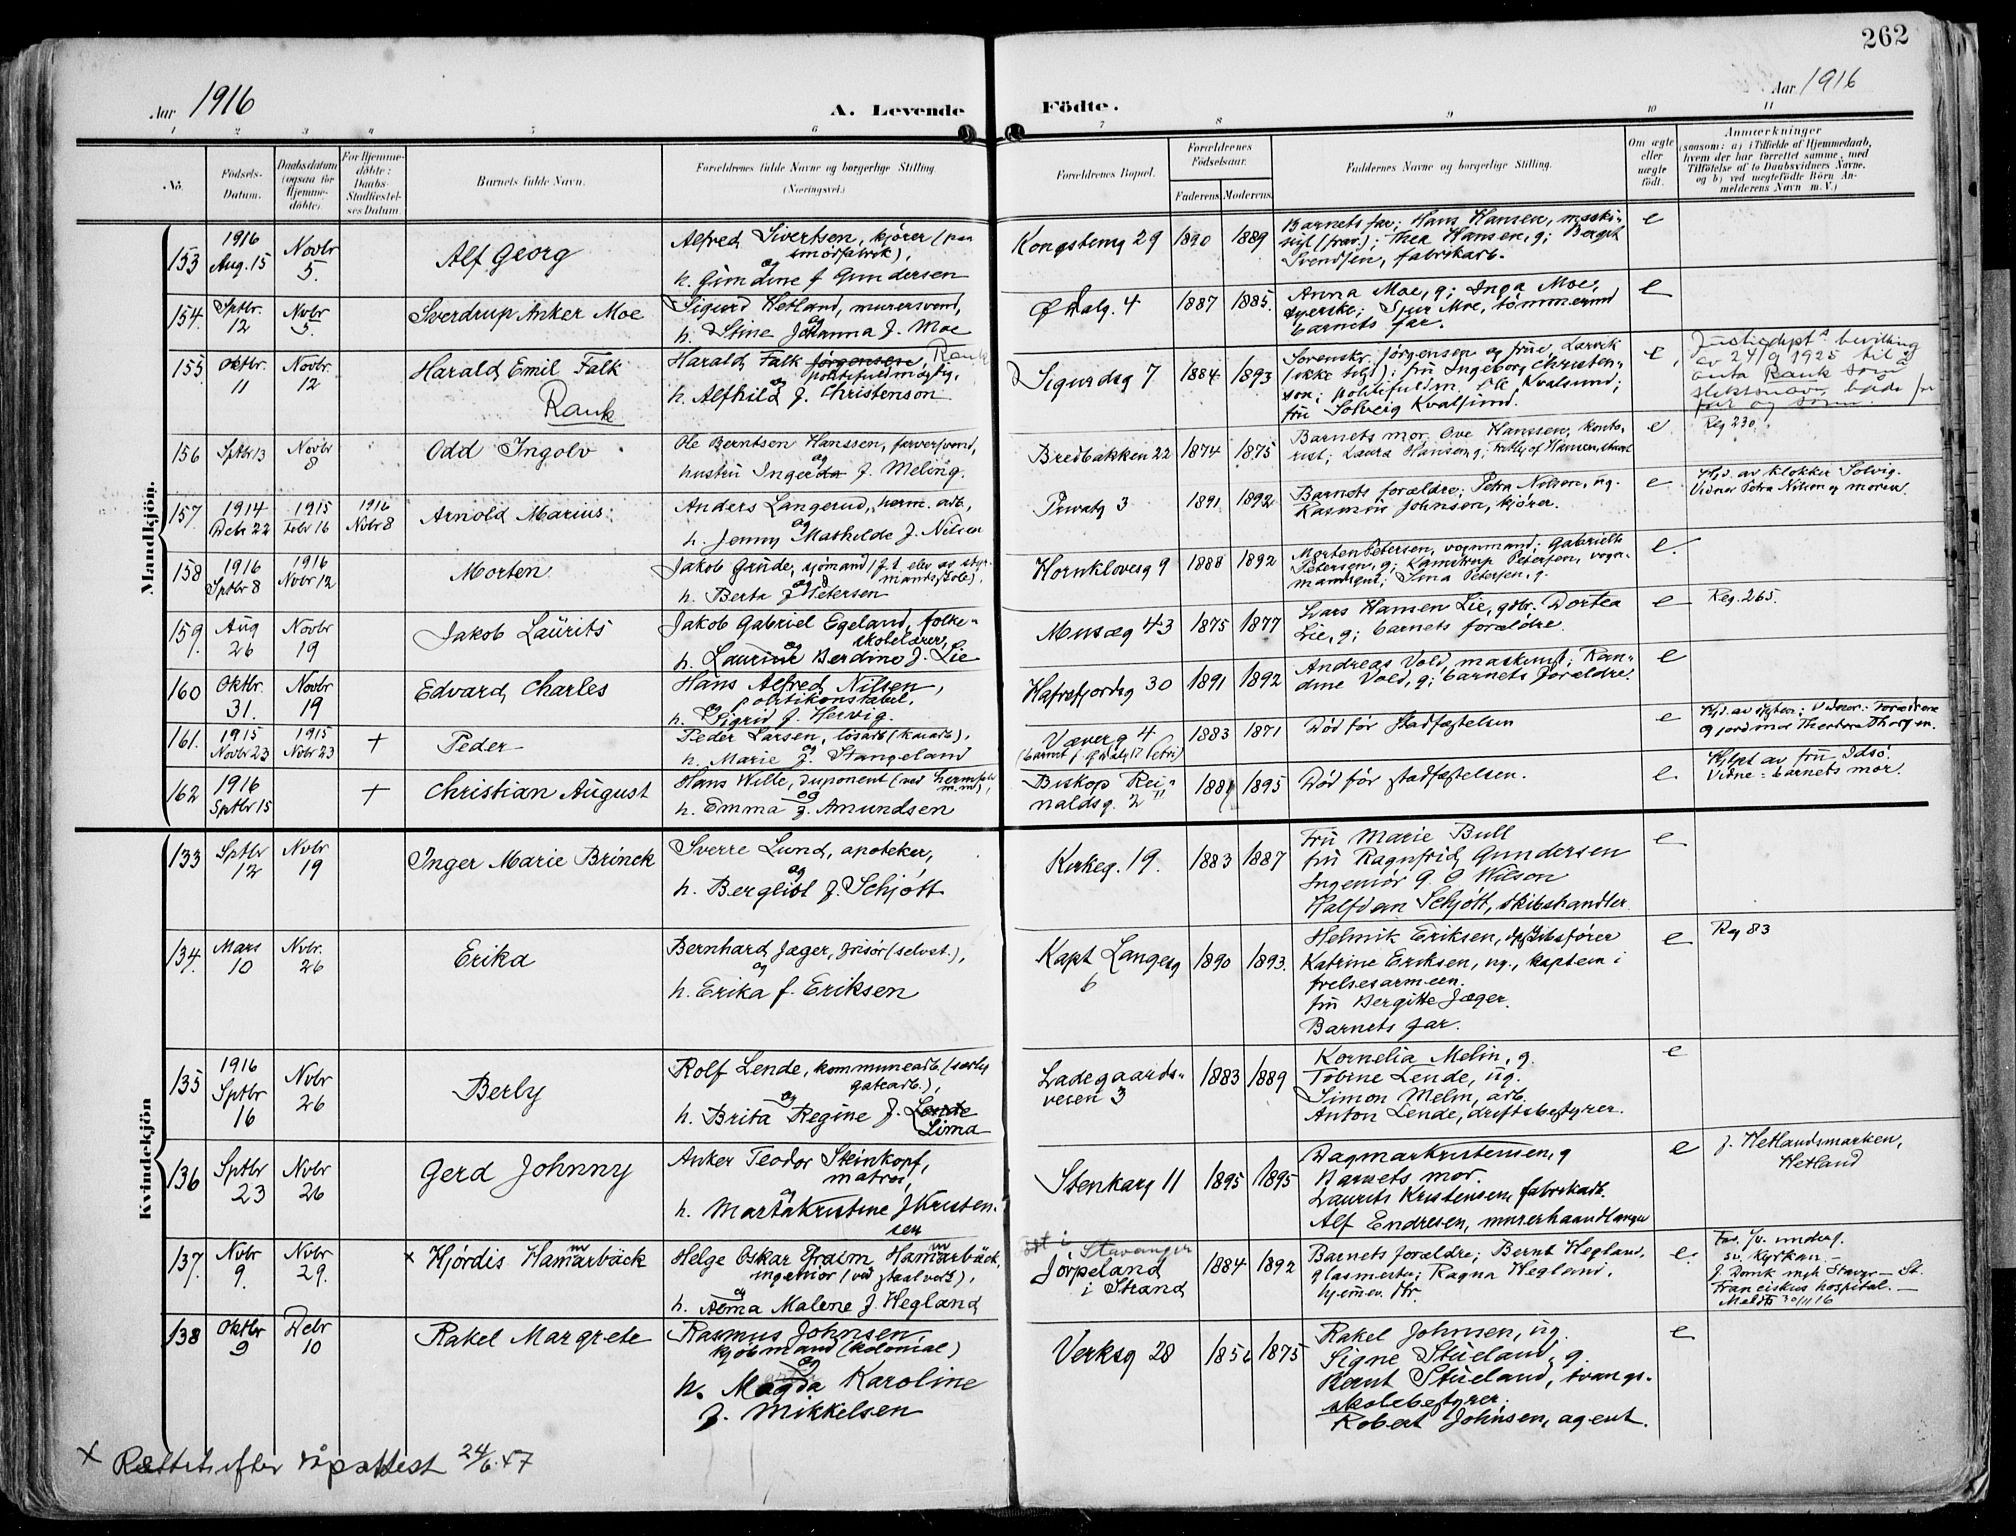 262
Aar 1916
A. Levende Födte.
Aar 1916
1 2 3 4 5 6 7 8 9 10 11
No.
Födsels-Datum.
Daabsdatum (ogsaa for Hjemme-döbte).
For Hjemme-döbte: Daabs-Stadfæstel-ses Datum.
Barnets fulde Navn.
Forældrenes fulde Navne og borgerlige Stilling. (Næringsvei.)
Forældrenes Bopæl.
Forældrenes Födselsaar.
Faderens. Moderens.
Faddernes Navne og borgerlige Stilling.
Om ægte eller uægte födt.
Anmærkninger (saasom: a) i Tilfælde af Hjemmedaab, hvem der har forrettet samme, med Tilföielse af to Daabsvidners Navne, og b) ved uægtefödte Börn Anmelderens Navn m. V.)
Mandkjön.
153 1916 Aug. 15 Novbr 5. Alf Georg
Alfred Sivertsen, kjører (paa smørfabrik),
og
h. Gundine f Gundersen
Kongsberg 29 1890 1889
Barnets far; Hans Hansen, maski-
nist (frav.); Thea Hansen, g; Berget
Svendsen, fabrikarb.
e
154. Sptbr. 12 Novbr 5. Sverdrup Anker Moe
Sigurd Hetland, murersvend,
og
h. Stine Johanna f. Moe
Ø Dalg. 4 1887 1885.
Anna Moe, g; Inga Moe,
syerske; Sjur Moe, tømmermd
barnets far.
e
155. Oktbr. 11 Novbr. 12 Harald Emil Falk
Rank
Harald Falk Jørgensen, Rank
politifuldmægtig,
og
h. Alfhild f. Christenson
Sigurdsg 7 1884 1893
Sorenskr. Jørgensen og frue, Larvik
(ikke tilst): fru Ingeborg Christen-
son; politifuldm. Ole Kvalsund;
fru Solveig Kvalsund.
e
Justisdept^s bevilling
av 24/9 1925 til å
anta Rank som
slektsnavn, både for
far og sønn.
156 Sptbr 13 Novbr 8 Odd Ingolv
Ole Berntsen Hanssen, farversvend,
og
hustru Ingerda f. Meling.
Bredbakken 22 1874 1875
Barnets mor, Ove Hanssen, konto-
rist; Laura Hanson g;
e
Reg 230.
157 1914 Debr 22 1915 Febr 16 1916 Novbr 8 Arnold Marius
Anders Langerud, herm. arb.,
og
h. Jenny Mathilde f. Nilsen
Privatg 3 1891 1892
Barnets forældre; Petra Nilsen, ug.
Rasmus Johnsen, kjører.
e
Hjd. av klokker Solvig.
Vidner Petra Nilsen og moren.
158 1916 Sptbr 8 1916 Novbr 12 Morten
Jakob Grude, sjømand (f.t. elev av styr-
mandsskole),
og
h. Berta f Petersen
Hornklovesg 9 1888 1892
Morten Petersen, vognmand; Gabrielle
Petersen, g; Kamstrup Petersen, vogn-
mandsgut; Sina Petersen, g.
e.
159. Aug 26 Novbr 19 Jakob Laurits
Jakob Gabriel Egeland, folke-
skolelærer,
og
h. Laurine Berdine f. Lie
Museg 43 1875 1877
Lars Hansen Lie, gdbr. Dortea
Lie, g; barnets forældre.
e
Reg. 265.
160 Oktbr. 31. Novbr 19 Edvard Charles
Hans Alfred Nilsen,
politikonstabel,
og
h. Sigrid f. Hervig.
Hafrsfjordsg 30 1891 1892
Andreas Vold, maskinist; Ran-
dine Vold, g; barnets forældre.
e
161. 1915 Novbr 23 1915 Novbr 23 + Peder
Peder Larsen,
og
h. Marie f. Stangeland
Væverg 4 1883 1871
Død før stadfæstelsen
e
162 1916 Sptbr 15 + Christian August
Hans Wille, disponent
og
h. Emma f. Amundsen
Biskop Rei-
naldsg. 2 1881 1895
Død før stadfæstelsen.
e
Hjdpt av fru Idsø.
Vidne: barnets mor.
Kvindekjön
133 Sptbr 12 Novbr 19 Inger Marie Brinck
Sverre Lund, apoteker,
og
h. Bergliot f. Schjött
Kirkeg. 19. 1883 1887
Fru Marie Bull
fru Ragnfrid Gundersen
Ingeniør G G Wilson
Halfdan Schjött, skibshandler.
e
134. Mars 10 Nvbr. 26 Erika
Bernhard Jæger, frisør (selvst.),
og
h. Erika f. Eriksen
Kapt Langesg 6 1890 1893.
Helmik Eriksen, skibsfører
Katrine Eriksen, ug., kaptein i
frelsesarmeen.
fru Bergitte Jæger.
Barnets far.
e
Reg 83
135 1916 Sptbr 16 Nvbr 26 Berly
Rolf Lende, kommunearb.
gatearb.),
og
h. Brita Regine f. Lende
Lima
Ladegaards-
veien 3 1883 1889
Kornelia Melin, g.
Tobine Lende, ug.
Simon Melin, arb.
Anton Lende, driftsbestyrer.
e
136 Sptbr 23 Nvbr 26 Gerd Johnny
Anker Teodor Steinkopf,
matros,
og
h. Marta Kristine f Kristen-
sen
Stenkarg 11 1895 1895
Dagmar Kristensen, g
Barnets mor.
Laurits Kristensen, fabrikarb.
Alf Endresen, murerhaandlanger
e
f. Hetlandsmarken,
Hetland
137. Nvbr 9. Nvbr 29. × Hjördis Hammarbäck
Helge Oskar Efraim Hammarbäck,
ingeniør (ved staalverk),
og
h. Alma Malene f. Hegland
Stavanger
Jørpeland
i Strand 1884 1892
Barnets forældre; Bernt Hegland,
glasmester; Ragna Hegland,
hjemmev. dtr.
e.
Far sv. underg.
sv. kyrkan —
f. Domk mgh Stavgr — St.
Franciskus hospital. —
Meldt 30/11 16
138 Oktbr 9 Debr 10 Rakel Margrete
Rasmus Johnsen,
kjøbmand (kolonial)
og
h. Magda Karoline
f. Mikkelsen
Verksg 28 1856 1875
Rakel Johnsen, ug.
Signe Stueland, g.
Bernt Stueland, tvangs-
skolebestyrer,
Robert Johnsen, agent.
e
× Rettet efter dåpsattest 24/6 47